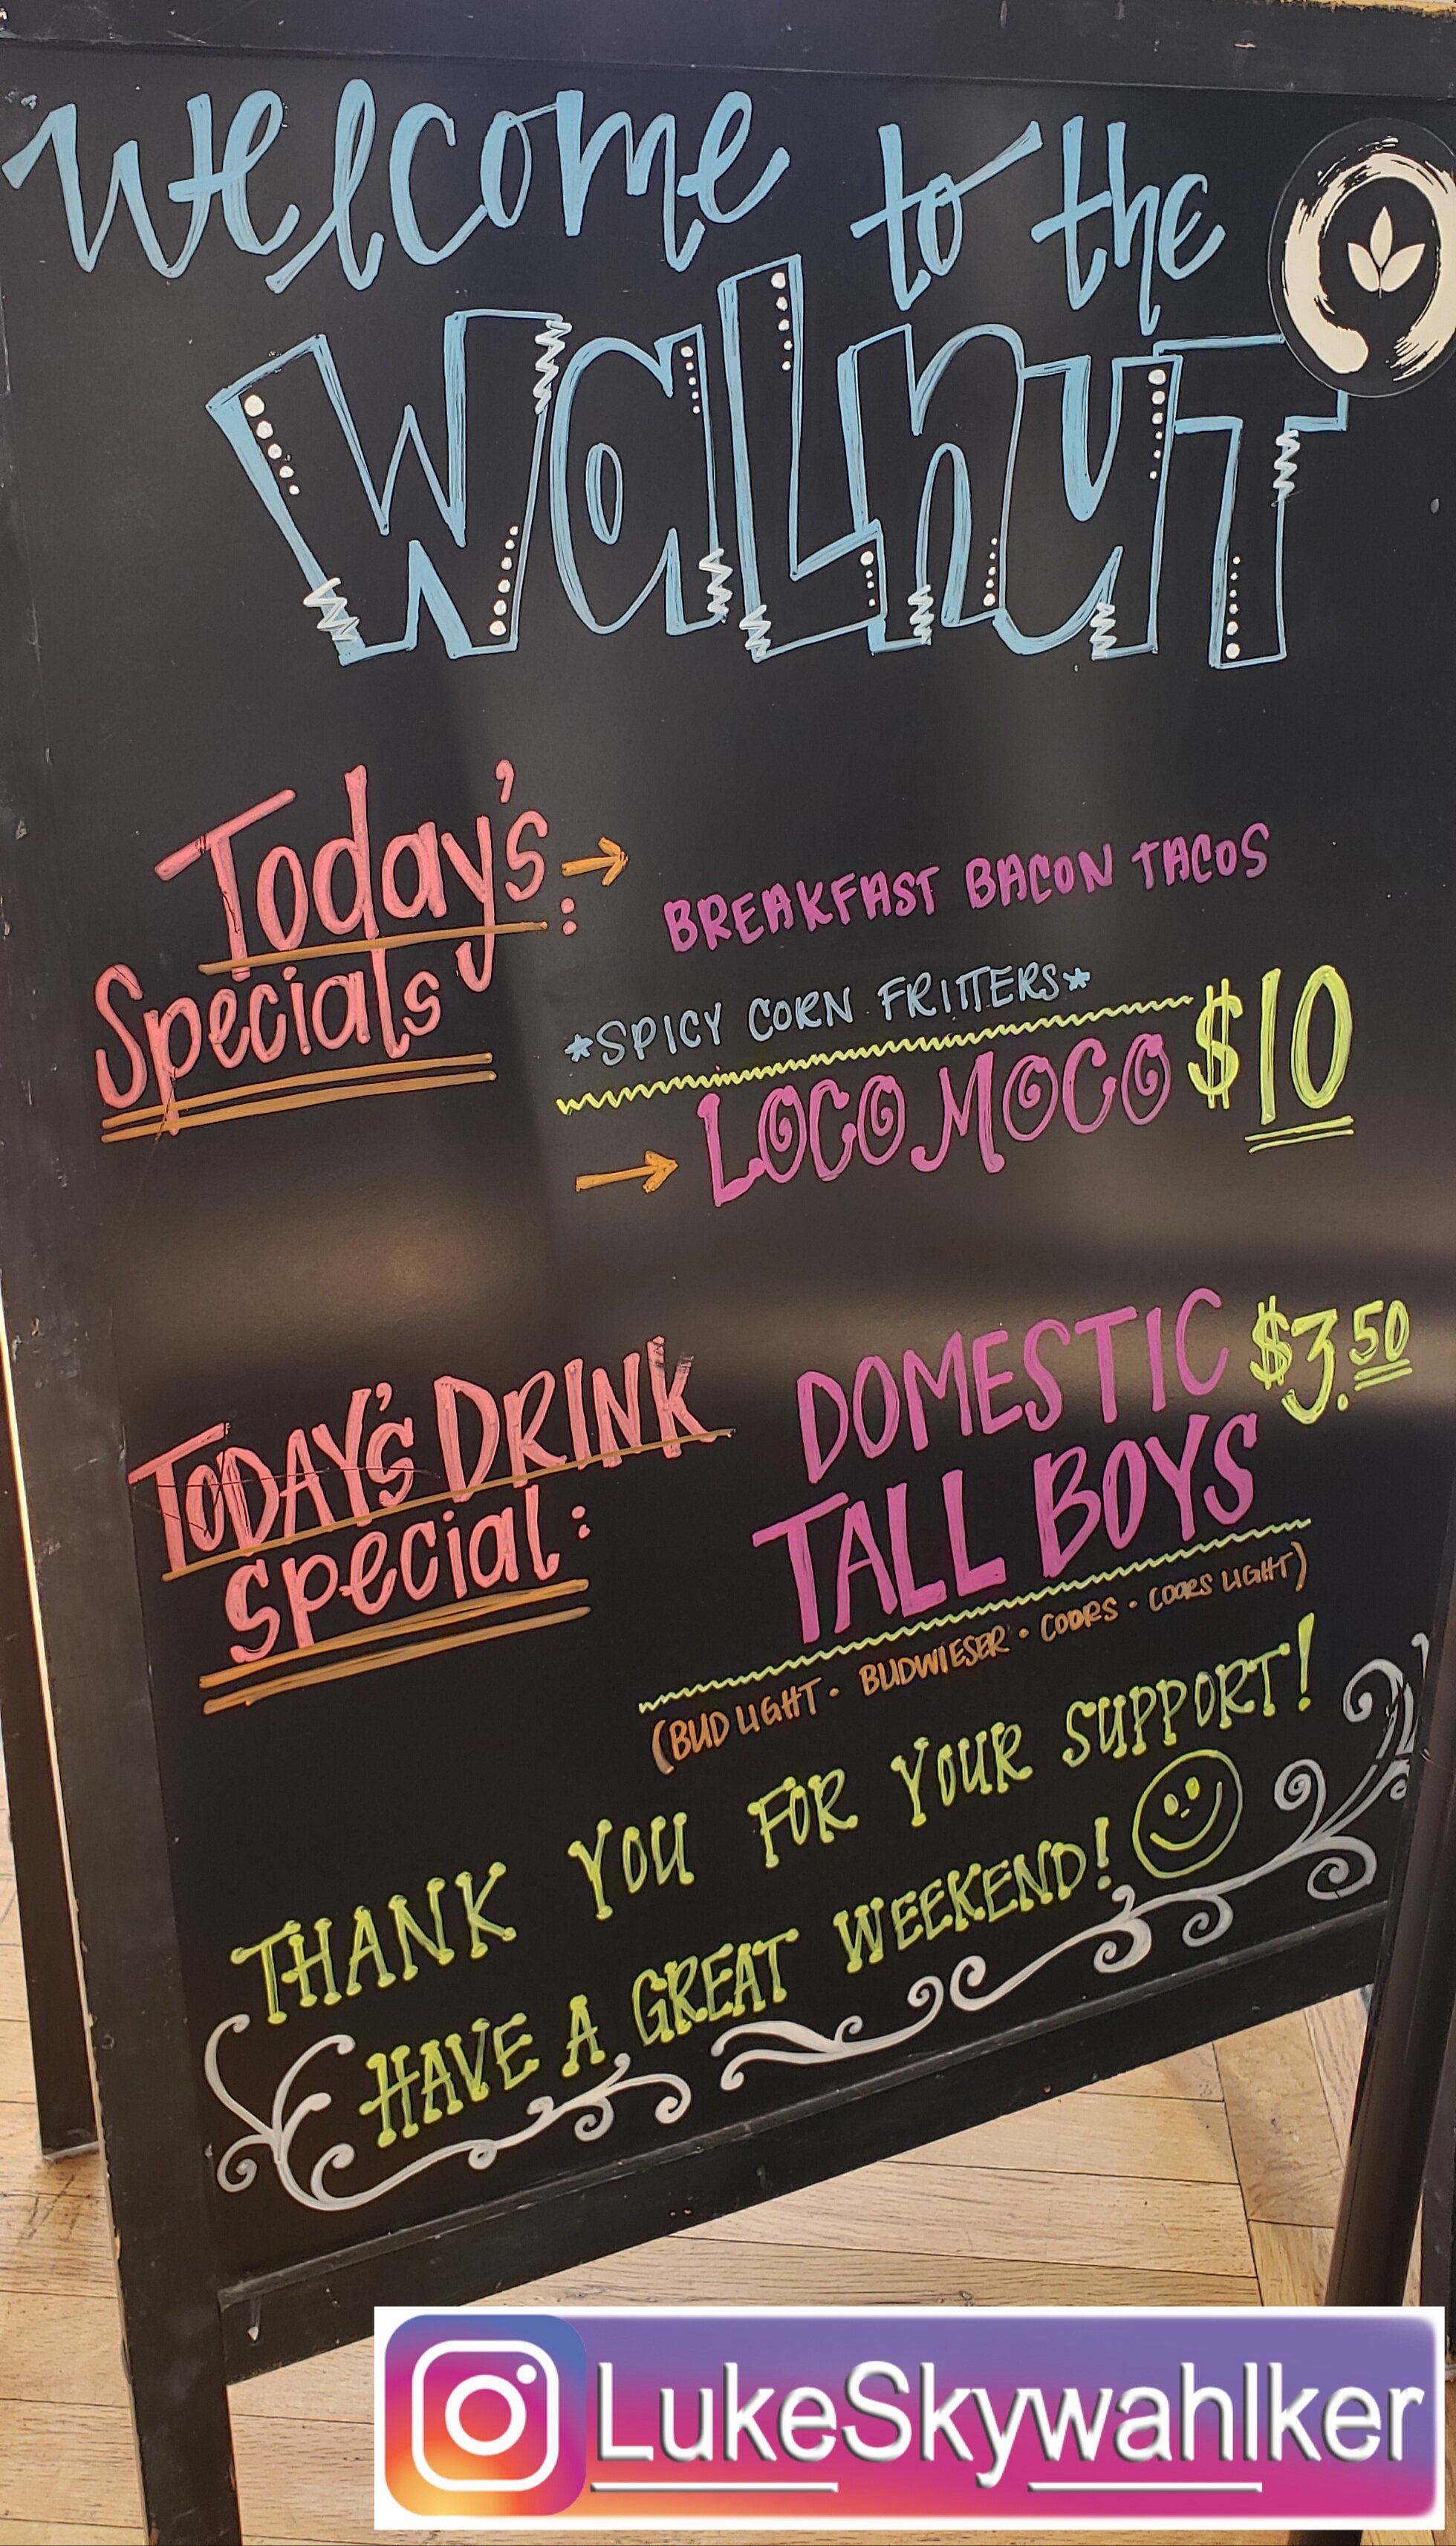 Welcome to the
WaLnuT
Today's :
Specials
BREAKFAST BACON TACOS
*SPICY CORN FRITTERS*
LOCO MOCO $10
TODAY'S DRINK
Special :
DOMESTIC $3.50
TALL BOYS
(BUD LIGHT · BUDWIESER · COORS · COORS LIGHT)
THANK YOU FOR YOUR SUPPORT!
HAVE A GREAT WEEKEND!
LukeSkywahlker